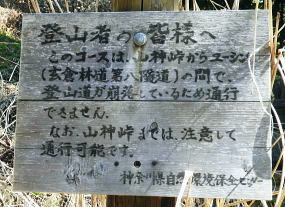 登山者の皆様へ
このコースは、山神峠からユーシン
(玄倉林道第八隧道)の間で、
登山道が崩落しているため通行
できません。
なお、山神峠までは、注意して
通行可能です。
神奈川県自然環境保全センター